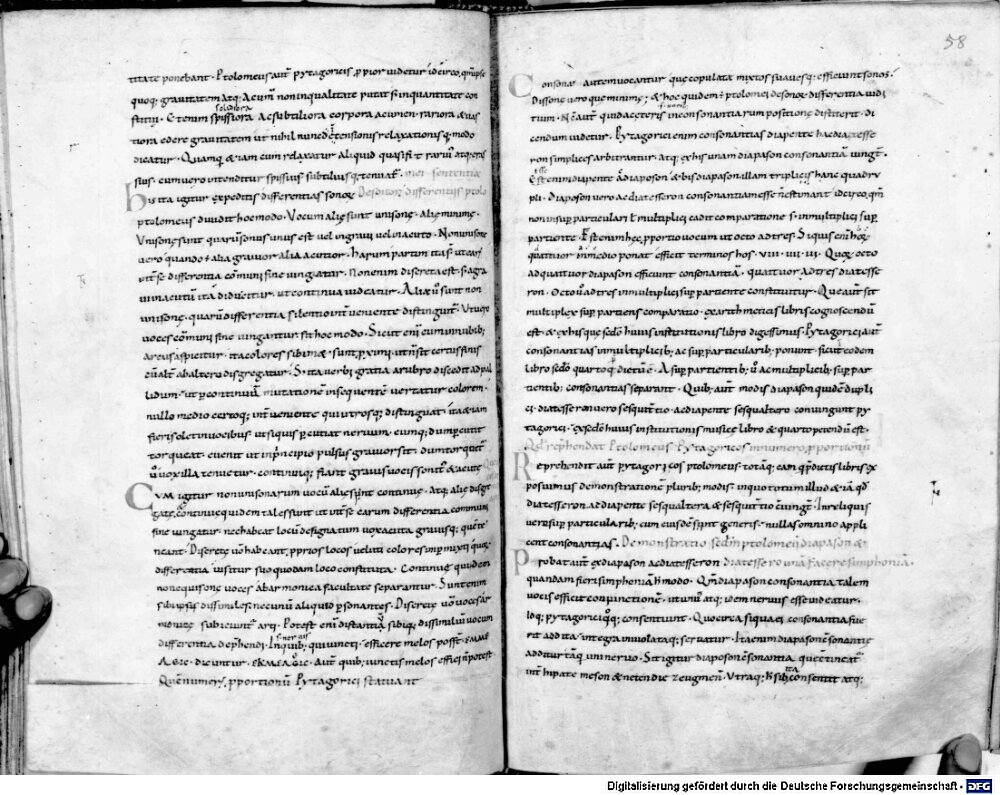 titate ponebant. Ptolomeus aut pytagoricis, ppior videtur idcirco, qm ipse
quoq; gravitatem atq; acum non in qualitate putat s in quantitate con
stitui. Etenim spissiora ac subtiliora corpora acumen rariora & vas
solidiora
tiora edere gravitatem ut nihil nunc de tensionis relaxationisq; modo
dicatur. Quamq & iam cum relaxatur aliquid quasi fit rariu atq; cras
sius. cum vero intenditur spissius subtiliusq; tenuat.
his ita igitur expeditis differentias sonor De sonor differentiis ptolo
ptolomeus dividit hoc modo. Vocum aliȩ sunt unisonȩ. aliȩ minimȩ.
Unisonȩ sunt quarū sonus unus est vel in gravi vel in acuto. Non unisonȩ
vero quando e alia gravior alia acutior. harum partim ita s ut ear
int se differentia cōmuni fine iungatur. Non enim discreta est. s a gra
vi in acutū ita diducitur, ut continua videatur. Aliȩ ū sunt non
unisonȩ. quarū differentia silentio int veniente distinguit. Ut vero
voces cōmuni fine iungantur fit hoc modo. Sicut enī cum in nubib;
arcus aspicitur. ita colores sibimet sunt pximi. ut n sit certus finis
cū alt ab altero disgregatur. S ita verbi gratia a rubro discedit ad pal
lidum. ut p continuā mutatione in sequente vertatur colorem.
nullo medio certoq; int veniente qui utrosq; distinguat. ita & iam
fieri solet in vocibus ut si quis pcutiat nervum. eumq; dum pcutit
torqueat. evenit ut in principio pulsus gravior sit. dum torquet
ū vox illa tenuetur. continuiq; fiant gravis vocis sonit & acute
Cum igitur non unisonarum vocū aliȩ sint continuȩ. atq; aliȩ disgre
gatȩ, continuȩ quidem tales sunt ut int se earum differentia communi
fine iungatur. nec habeat locū designatum vox acuta gravisq; quē te
neant. Discretȩ vō habeant pprios locos veluti colores impmixti quor
differentia visitur suo quodam loco constituta. Continuȩ quidem
non equisonȩ voces ab armonica facultate separantur. Sunt enim
sibi ipsis dissimiles; nec unū aliquid psonantes. Discretȩ vō voces ar
monicȩ subiciunt arti. Potest enī distantiū sibiq; dissimiliū vocum
differentia dephendi. In quib; qui iuncti efficere melos possē EMME
ΛΕΙC dicuntur. ΕΚΜΕΛΕΙC aut quib; iunctis melos effici n potest
Quē numerū pportionū Pytagorici statuant
58
Consonae autem vocantur quȩ copulatȩ mixtos suavesq; efficiunt sonos.
Dissonȩ vero quȩ minimȩ; & hoc quidem e ptolomei de sonor differentia iudi
tium. Nc aut quid a cȩteris in consonantiarum positione distiterit. di
cendum videtur. Pytagorici enim consonantias diapente ac dia tesse
ron simplices arbitrantur. atq; ex his unam diapason consonantiā iungt.
Est enim diapente & diapason & bis diapason illam triplicis hanc quadru
pli. Diapason vero ac diatesseron consonantiam esse n estimant idcirco, qm
non in suppartculari t multiplici cadit comparatione s in multiplici sup
partiente. Est enim hec, pportio vocum ut octo ad tres. Si quis enī hor
quattuor in medio ponat efficit terminos hos. VIII. IIII. III. Quor octo
ad quattuor diapason efficiunt consonantiā. quattuor ad tres diatesse
ron. Octo ū ad tres in multiplici suppartiente constituitur. Que aut sit
multiplex sup partiens comparatio. ex arithmeticis libris cognoscendū
est. & ex his que sedo huius institutionis libro digessimus. Pytagorici aut
consonantias in multiplicib; ac supparticularib; ponunt. sicut eodem
libro sedo quartoq; dictū e. A suppartientib; ū ac multiplicib; suppar
tientib; consonantias separant. Quib; aut modis diapason quidē dupli
ci. diatesseron vero sesquit tio. ac diapente sesqualtero coniungunt py
tagorici. ex sedo huius institutionis musicȩ libro & quarto petendū est.
Qd rephendat Ptolomeus Pytagoricos in numero, pportionū
Reprehendit aut pytagoricos ptolomeus. totaq; eam q pdictis libris ex
posuimus demonstrationē plurib; modis. in quo totum illud & iā qd
diatesseron ac diapente sesqualtera & sesquit tio cōiungt. In reliquis
vero supparticularib; cum eiusdē sint generis. nullas omnino appli
cent consonantias. Demonstratio sedm ptolomeū diapason &
Probat aut ex diapason ac diatesseron diatesseron unā facere simphoniā.
quandam fieri simphoniā h modo. Qm diapason consonantia talem
vocis efficit coniunctionē. ut unū atq; idem nervus esse videatur.
Idq; pytagoriciq; consentiunt. Quocirca si qua ei consonantia fue
rit addita. integra inviolataq; servatur. Ita enim diapason cōsonantiȩ
additur tāq uni nervo. Sit igitur diapason cōsonantia quȩ tineat
int hipate meson & neten diezeugmen. Utraq; h sibi consentit atq;
ita
Digitalisierung gefördert durch die Deutsche Forschungsgemeinschaft - DFG